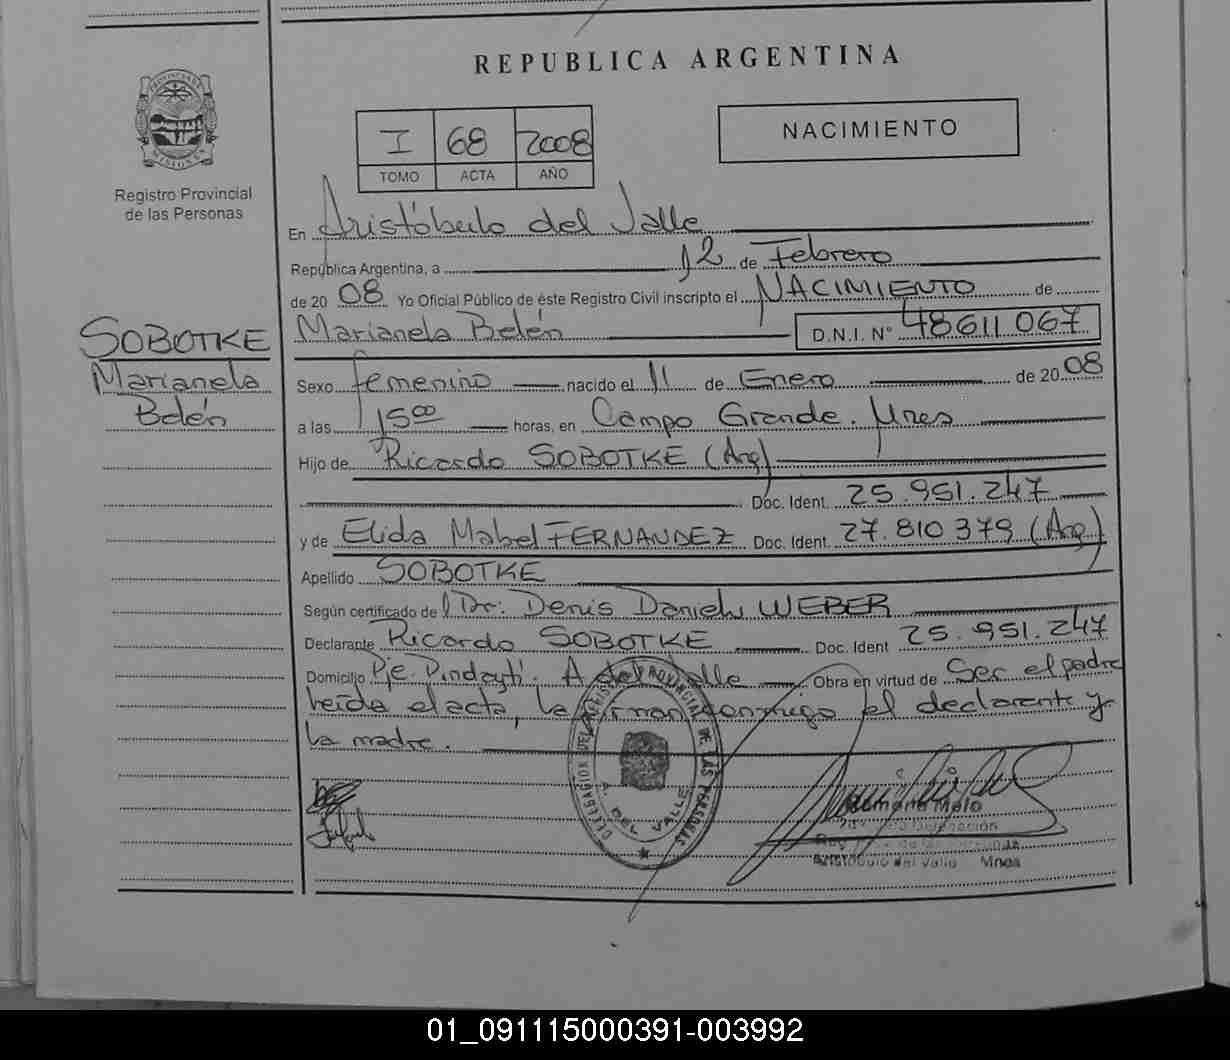 REPUBLICA ARGENTINA
PROVINCIA DE
MISIONES
Registro Provincial
de las Personas
I 68 2008
TOMO ACTA AÑO
NACIMIENTO
En Aristóbulo del Valle
República Argentina, a 12 de Febrero
de 20 08 Yo Oficial Público de éste Registro Civil inscripto el NACIMIENTO de
Marianela Belén D.N.I. N° 48611067
SOBOTKE
Marianela
Belén
Sexo femenino nacido el 11 de Enero de 20 08
a las 15 00 horas, en Campo Grande. Mnes
Hijo de Ricardo SOBOTKE (Arg)
Doc. Ident. 25.951.247
y de Elida Mabel FERNANDEZ Doc. Ident. 27.810379 (Arg)
Apellido SOBOTKE
Según certificado de Dr: Denis Daniel WEBER
Declarante Ricardo SOBOTKE Doc. Ident 25.951.247
Domicilio Pje. Pindayti. A del Valle Obra en virtud de Ser el padre
leída el acta, la firman conmigo el declarante y
la madre.
DELEGACION DEL REGISTRO PROVINCIAL DE LAS PERSONAS
A. DEL VALLE
Melo
Delegación
Aristóbulo del Valle Mnes
01_091115000391-003992